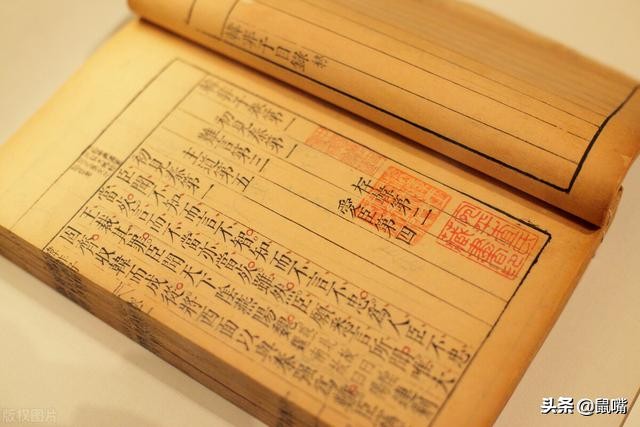 韓非子目錄 終
韓非子卷第一
初見秦第一 存韓第二
難言第三 愛臣第四
主道第五
初見秦第一
臣聞不知而言不智知而不言不忠爲人臣不忠
當死言而不當亦當死雖然臣願悉言所聞唯大
王裁其罪臣聞天下陰燕陽魏
固齊收韓而成從將西面以與秦强爲
版权图片
头条 @鼠嘴